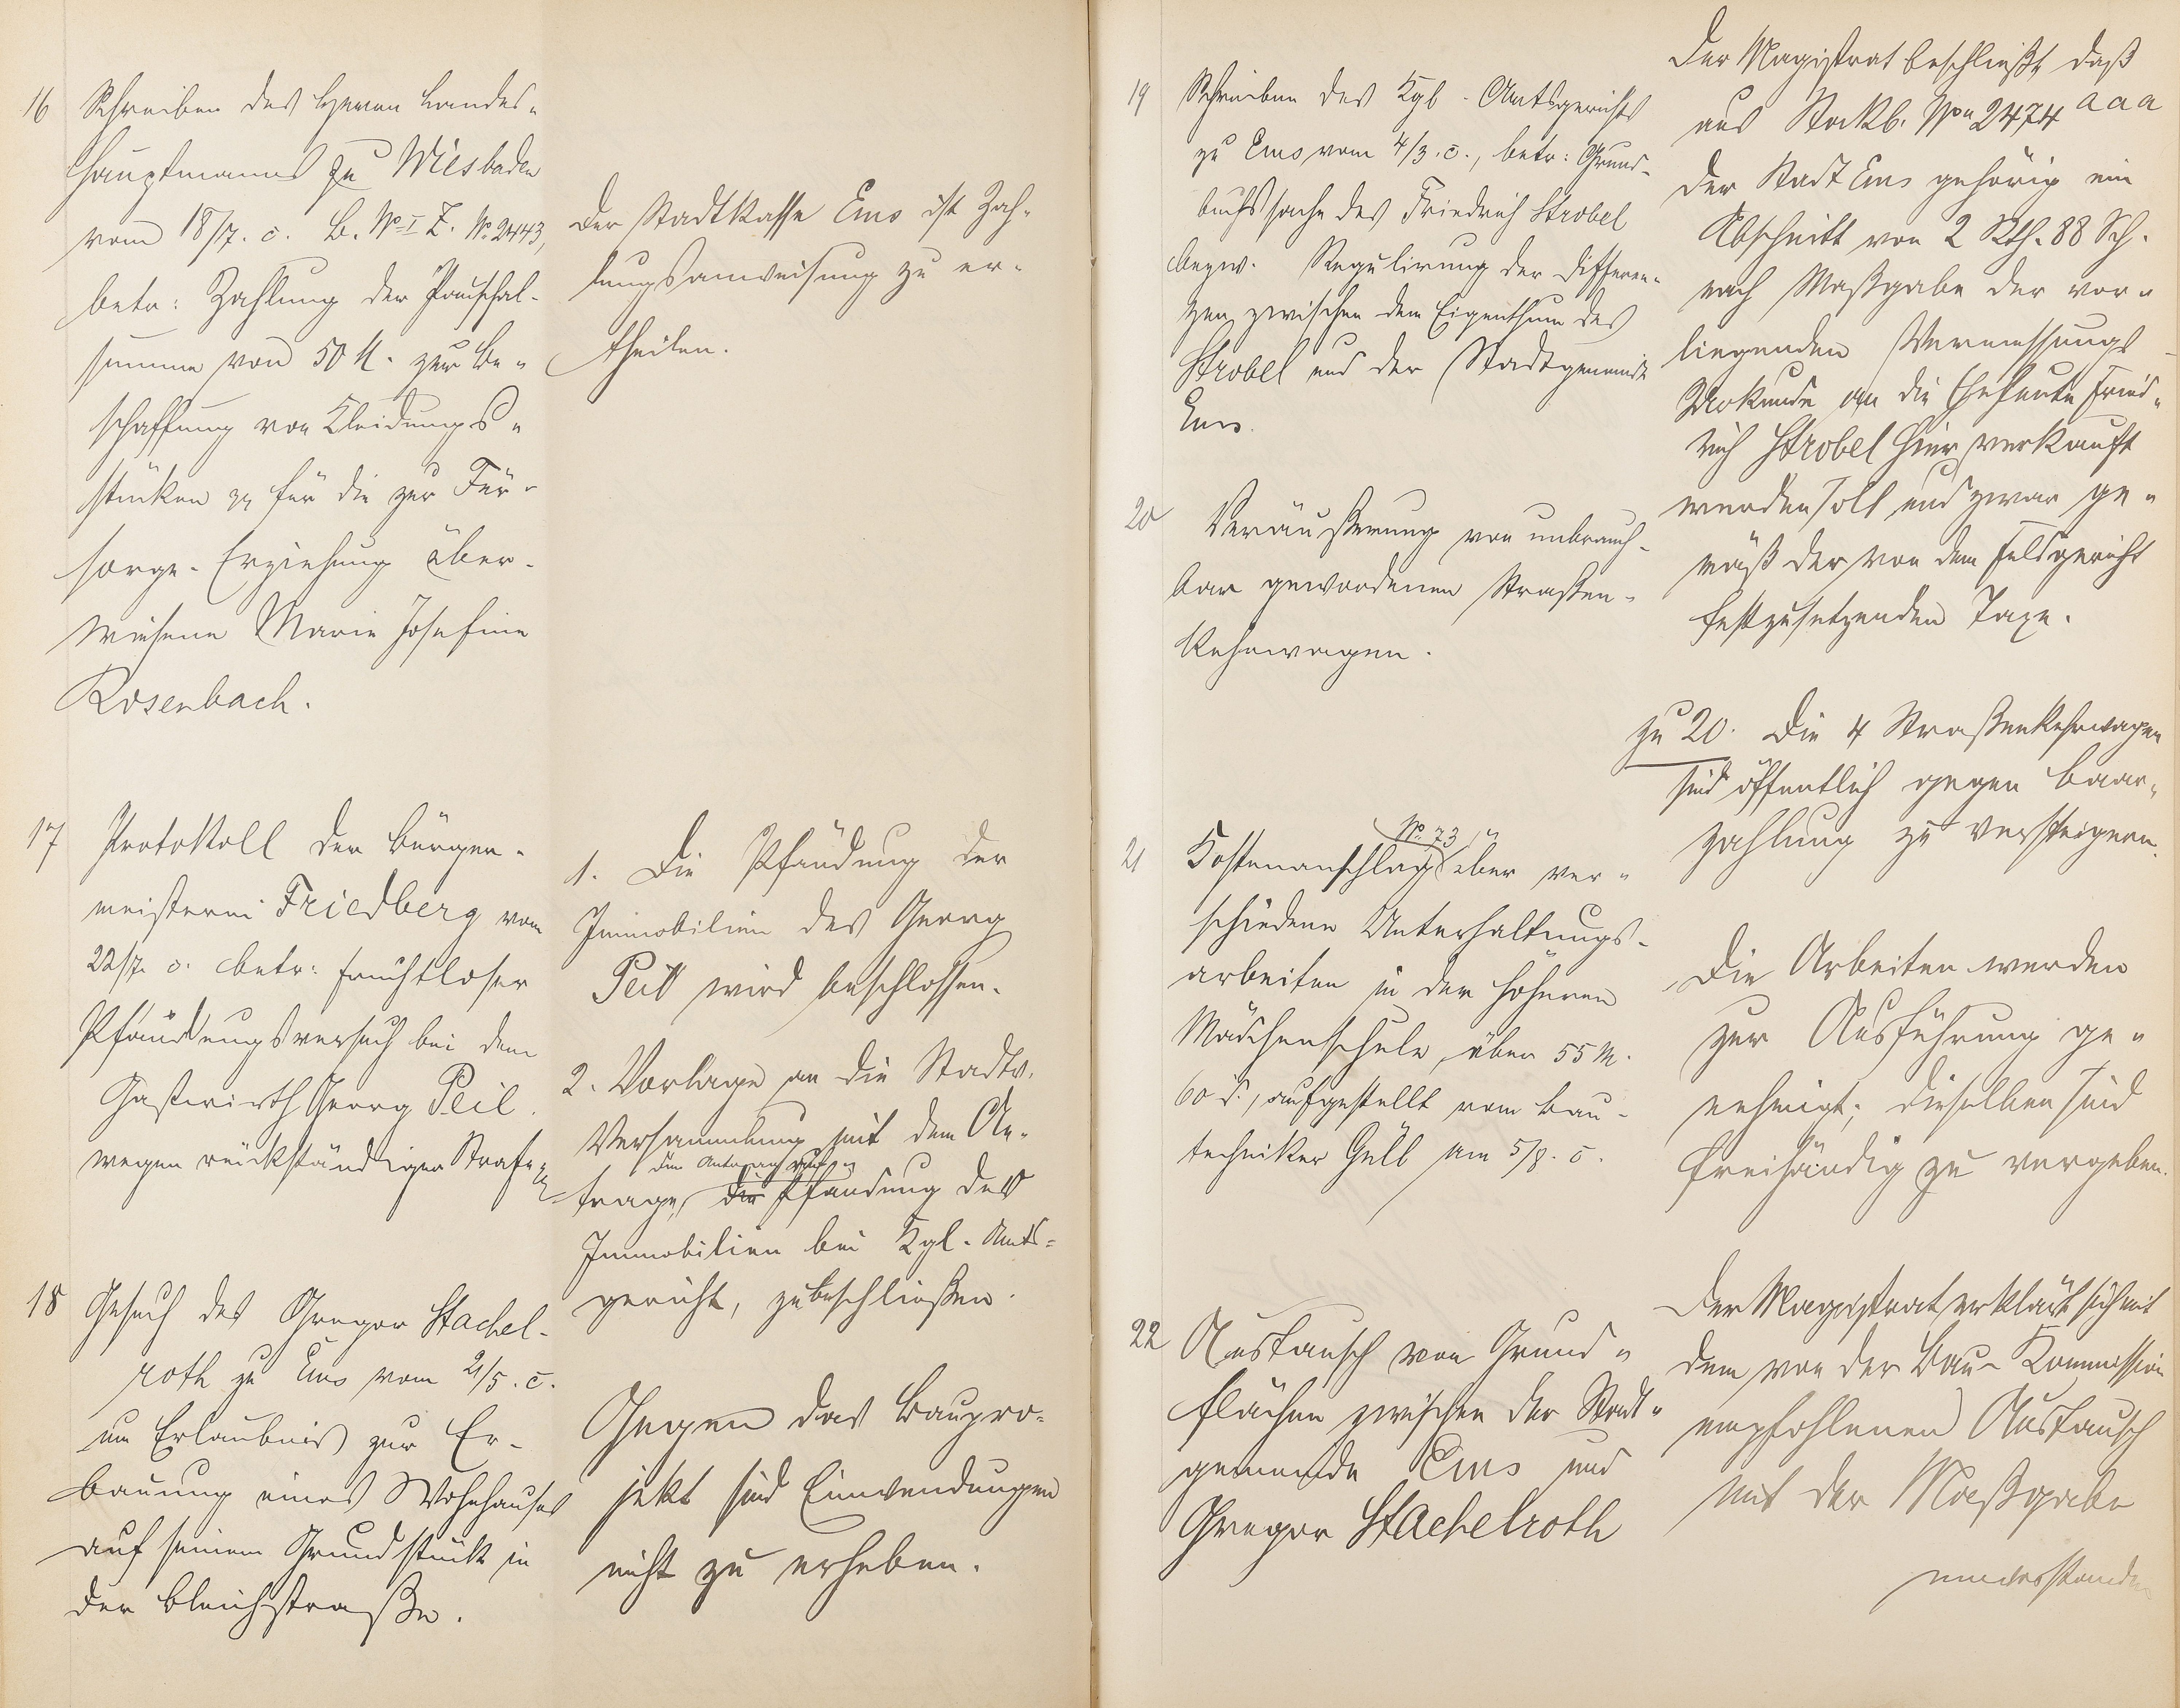 16 Schreiben des Herrn Landes-
hauptmanns zu Wiesbaden
vom 18/7. c. B. No I Z. No 2443,
betr: Zahlung der Pauschal-
summe von 50 M. zur Be-
schaffung von Kleidungs-
stücken pp für die zur Für-
sorge-Erziehung über-
wiesene Marie Josefine
Rosenbach.
Der Stadtkasse Ems ist Zah-
lungsanweisung zu er-
theilen.
17 Protokoll der Bürger-
meisterei Friedberg vom
22/7. c. betr: fruchtloser
Pfändungsversuch bei dem
Gastwirth Georg Peil
wegen rückständiger Strafe pp
1. Die Pfändung der
Immobilien des Georg
Peil wird beschlossen.
2. Vorlage an die Stadtv.
Versammlung mit dem An-
den Antrag auf
trage, die Pfändung des
Immobilien bei Kgl. Amts-
gericht, zu beschließen.
18 Gesuch des Gregor Stachel-
roth zu Ems vom 21/5. c.
um Erlaubnis zur Er-
bauung eines Wohnhauses
auf seinem Grundstück in
der Bleichstraße.
Gegen das Baupro-
jekt sind Einwendungen
nicht zu erheben.
19 Schreiben des Kgl. Amtsgerichts
zu Ems vom 4/3. c., betr: Grund-
buchssache des Friedrich Strobel
bezw. Regulirung der Differen-
zen zwischen dem Eigenthum des
Strobel und der Stadtgemeinde
Ems.
Der Magistrat beschließt, daß
aus Stockb. No 2474 aaa
der Stadt Ems gehörig ein
Abschnitt von 2 Rth. 88 Sch.
nach Maßgabe der vor-
liegenden Vermessungs-
Urkunde an die Eheleute Fried-
rich Strobel hier verkauft
werden soll und zwar ge-
mäß der von dem Feldgericht
festzusetzenden Taxe.
20 Veräußerung von unbrauch-
bar gewordenen Straßen-
kehrwagen.
zu 20. Die 4 Straßenkehrwagen
sind öffentlich gegen Baar-
zahlung zu versteigern.
No 73
21 Kostenanschlag über ver-
schiedene Unterhaltungs-
arbeiten in der höheren
Mädchenschule, über 55 M.
60 d., aufgestellt vom Bau-
techniker Güll am 5/8. c.
Die Arbeiten werden
zur Ausführung ge-
nehmigt; dieselben sind
freihändig zu vergeben.
22 Austausch von Grund-
flächen zwischen der Stadt-
gemeinde Ems und
Gregor Stachelroth
Der Magistrat erklärt sich mit
dem von der Bau-Kommission
empfohlenen Austausch
mit der Maßgabe
einverstanden